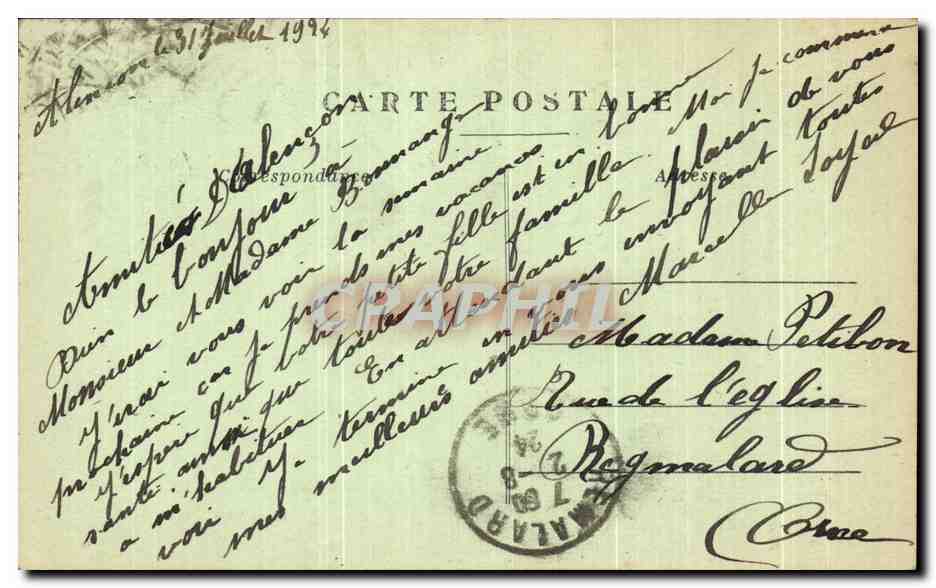 Alençon le 31 Juillet 1924
CARTE POSTALE
Correspondance
Adresse
Amitiés D'Alençon
Bien le bonjour à
Monsieur & Madame
j'irai vous voir la semaine
prochaine car je prends mes vacances
j'espère que votre petite fille est en bonne
santé ainsi que toute votre famille. Moi je commence
a m'habituer En attendant le plaisir de vous
voir je termine en vous envoyant toutes
mes meilleurs amitiés Marcelle
Madame Petibon
Rue de l'église
Regmalard
(Orne
REMALARD
ORNE
7 60
2 - 8
24
CPAPHIL